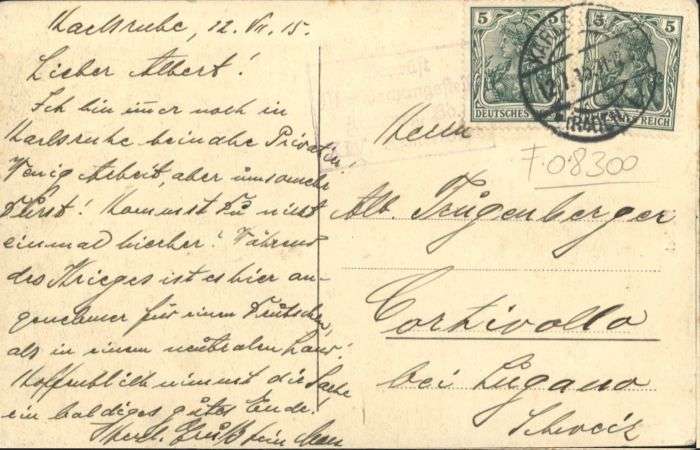 Karlsruhe, 12. VII. 15.
Lieber Albert!
Ich bin im̅er noch in
Karlsruhe beinahe Privatier!
Wenig Arbeit, aber umsomehr
Durst! Kommst Du nicht
einmal hierher? Während
des Krieges ist es hier an-
genehmer für einen Deutschen,
als in einem neutralen Land!
Hoffentlich nimmt die Sache
ein baldiges gutes Ende!
Herzl. Gruß Dein
5 5
DEUTSCHES REICH
5
REICH
KARLSRUHE
12.7.15
(BADEN)
F.08300
Herrn
Alb.
Cortivallo
bei Lugano
Schweiz